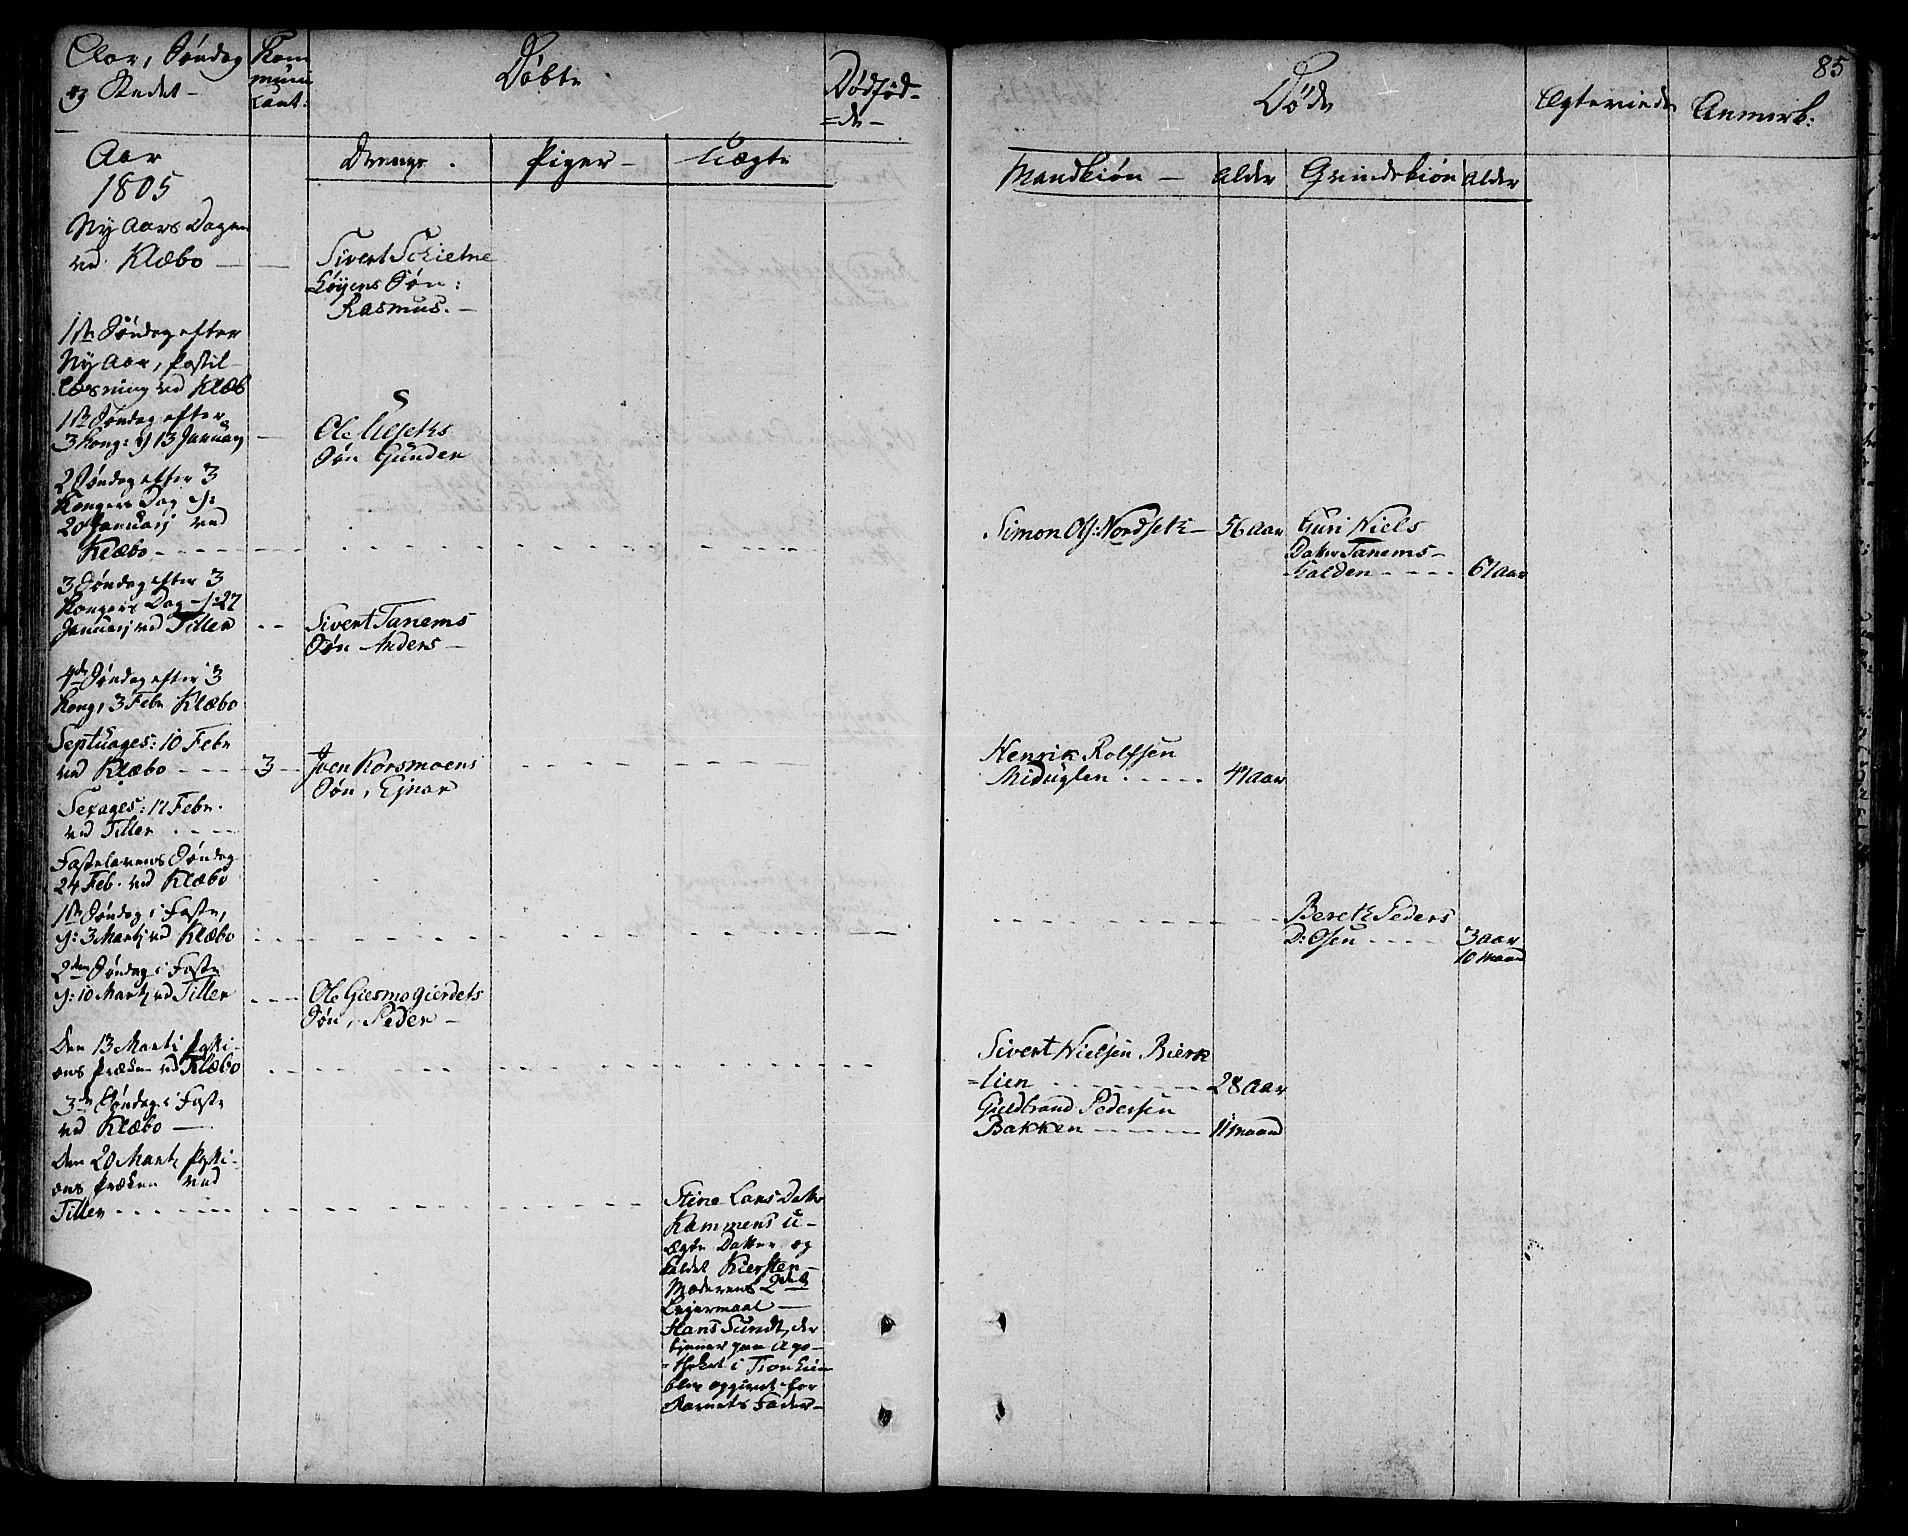 Aar, Söndag
og Stedet -
Kom
muni
cant:
Döbte
Dödföd-
=de -
Döde
Egteviede
Anmerk:
85
Aar
1805
Drenge.
Piger -
Uægte
Mandkiön -
Alder
Qvindekiön
Alder
Ny Aars Dagen
ved Klæbo -
Sivert Schietne
=Löyens Sön:
Rasmus. -
1ste Söndag efter
Ny Aar, Postil
læsning ved Klæb
1ste Söndag efter
3 Kong: d 13 Januarj
Ole Ulseths
Sön Gunder
2 Söndag efter 3
Kongers Dag d:
20 Januarj ved
Klæbo -
Simon Ols: Nordseth - 56 aar
Guri Niels
Dater Tanems-
halden - 61 aar
3 Söndag efter 3
Kongers Dag d: 27
Januarj ved Tiller
Sivert Tanems
Sön Anders -
4de Söndag efter 3
Kong, 3 Febr Klæbo
Septuages: 10 Febr
ved Klæbo - 3
Iven Korsmoens
Sön, Ejnar
Henrik Rolfsen
Miduglen - 41 aar
Sexages: 17 Febr.
ved Tiller
Fastelavens Söndag
24 Feb. ved Klæbo
1ste Söndag i Faste,
d: 3 Martj ved Klæbo
Bereth Peders
D: Osen - 3 aar
10 maand
2den Söndag i Faste
d: 10 Martj ved Tiller
Ole Giesmogierdets
Sön, Peder -
Den 13 Martj Passi-
ons Præken ved Klæbo
Sivert Nielsen Bierk
=lien - 28 aar
Guldbrand Pedersen
Bakken - 11 maand
3de Söndag i Faste
ved Klæbo -
Den 20 Martj Passi-
ons Præken ved
Tiller -
Stine Lars Datter
Kammens u-
ægte Datter og
kaldet Kiersten -
Moderens 2det
Leiermaal -
Hans Sundt, der
tjener paa Apo-
=theket i Tronhiem
blev opgivet for
Barnets Fader -